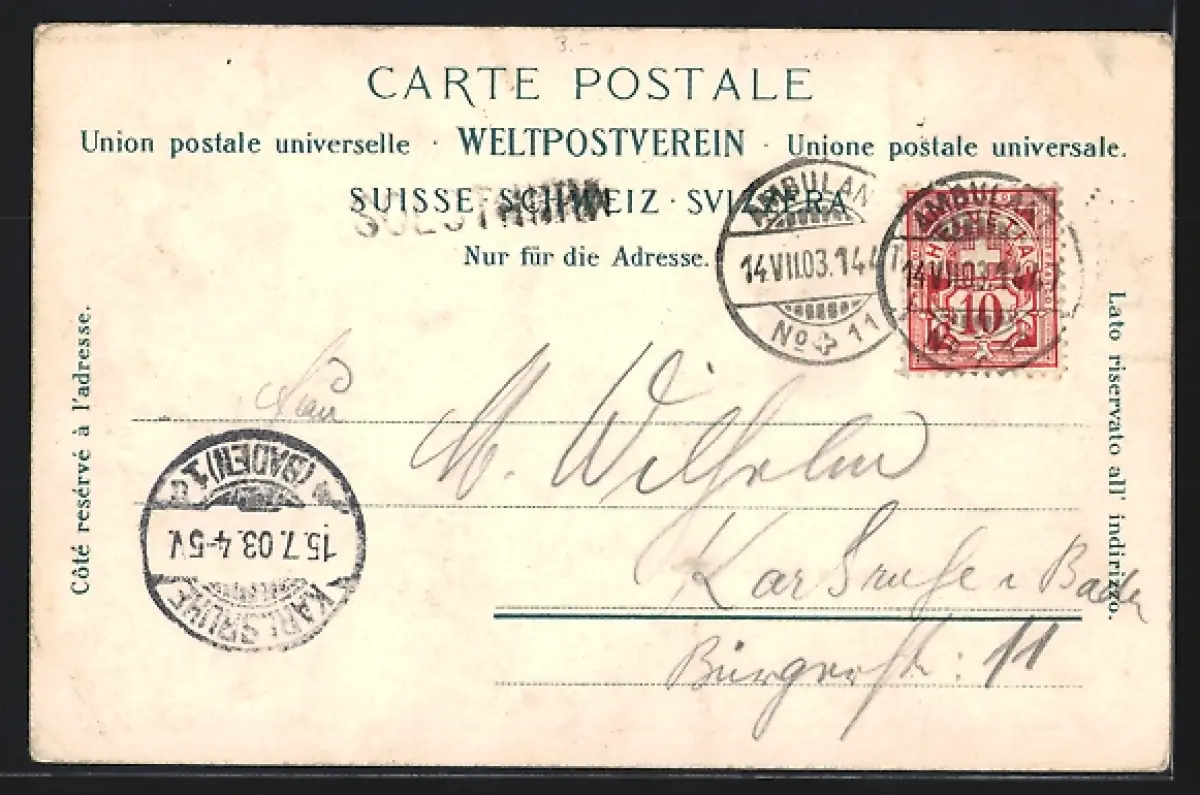 3.-
CARTE POSTALE
Union postale universelle · WELTPOSTVEREIN · Unione postale universale.
SUISSE SCHWEIZ · SVIZZERA
Nur für die Adresse.
AMBULANT
14.VII.03.144
No 11
AMBULANT
14.VII.03.144
No
HELVETIA
10
Côté resérvé à l'adresse.
Lato riservato all' indirizzo.
Frau
M. Wilhelm
Karlsruhe i Baden
Bürgerstr: 11
KARLSRUHE
15.7.03.4-5V.
(BADEN) 1